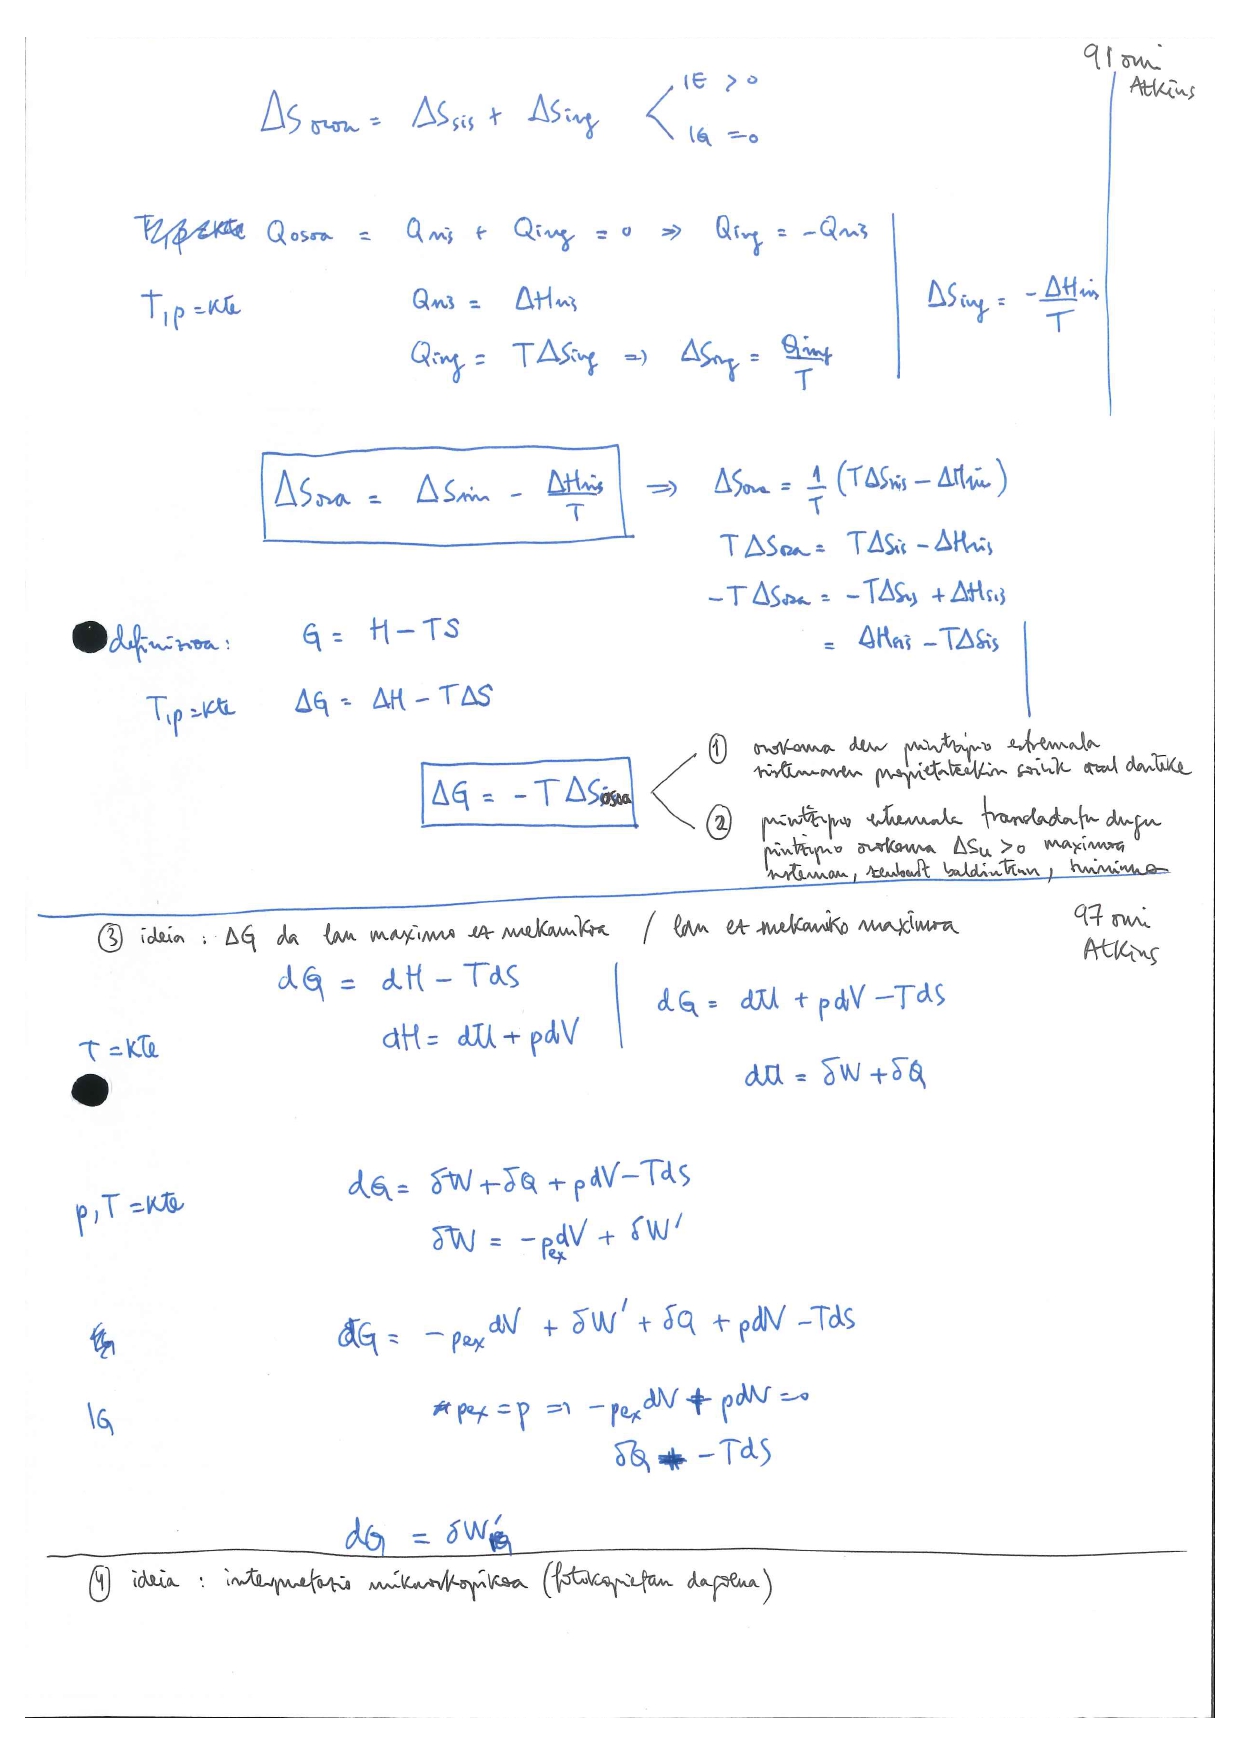 91 orri
Atkins
ΔSosoa = ΔSsis + ΔSing < IE > 0
IG = 0
Qosoa = Qsis + Qing = 0 ⇒ Qing = -Qsis
T, p = kte Qsis = ΔHsis
ΔSing = -ΔHsis/T
Qing = TΔSing ⇒ ΔSing = Qing/T
ΔSosoa = ΔSsis - ΔHsis/T ⇒ ΔSosoa = 1/T (TΔSsis - ΔHsis)
TΔSosoa = TΔSsis - ΔHsis
-TΔSosoa = -TΔSsis + ΔHsis
= ΔHsis - TΔSsis
definizioa: G = H - TS
T, p = kte ΔG = ΔH - TΔS
ΔG = -TΔSosoa
① orokorra den printzipio estremala
sistemaren propietateekin soilik dauteke
② printzipio estremala transladatu dugu
printzipio orokorra ΔSu > 0 maximoa
sisteman, zenbait baldintzan, minimoa
③ ideia : ΔG da lan maximo ez mekanikoa / lan ez mekaniko maximoa
97 orri
Atkins
dG = dH - TdS
dH = dU + pdV
dG = dU + pdV - TdS
T = kte
dU = δW + δQ
p, T = kte dG = δW + δQ + pdV - TdS
δW = -pex dV + δW'
dG = -pex dV + δW' + δQ + pdV - TdS
IG pex = p ⇒ -pex dV + pdV = 0
δQ - TdS
dG = δW'
④ ideia : interpretazio mikroskopikoa (fotokopietan dagoena)